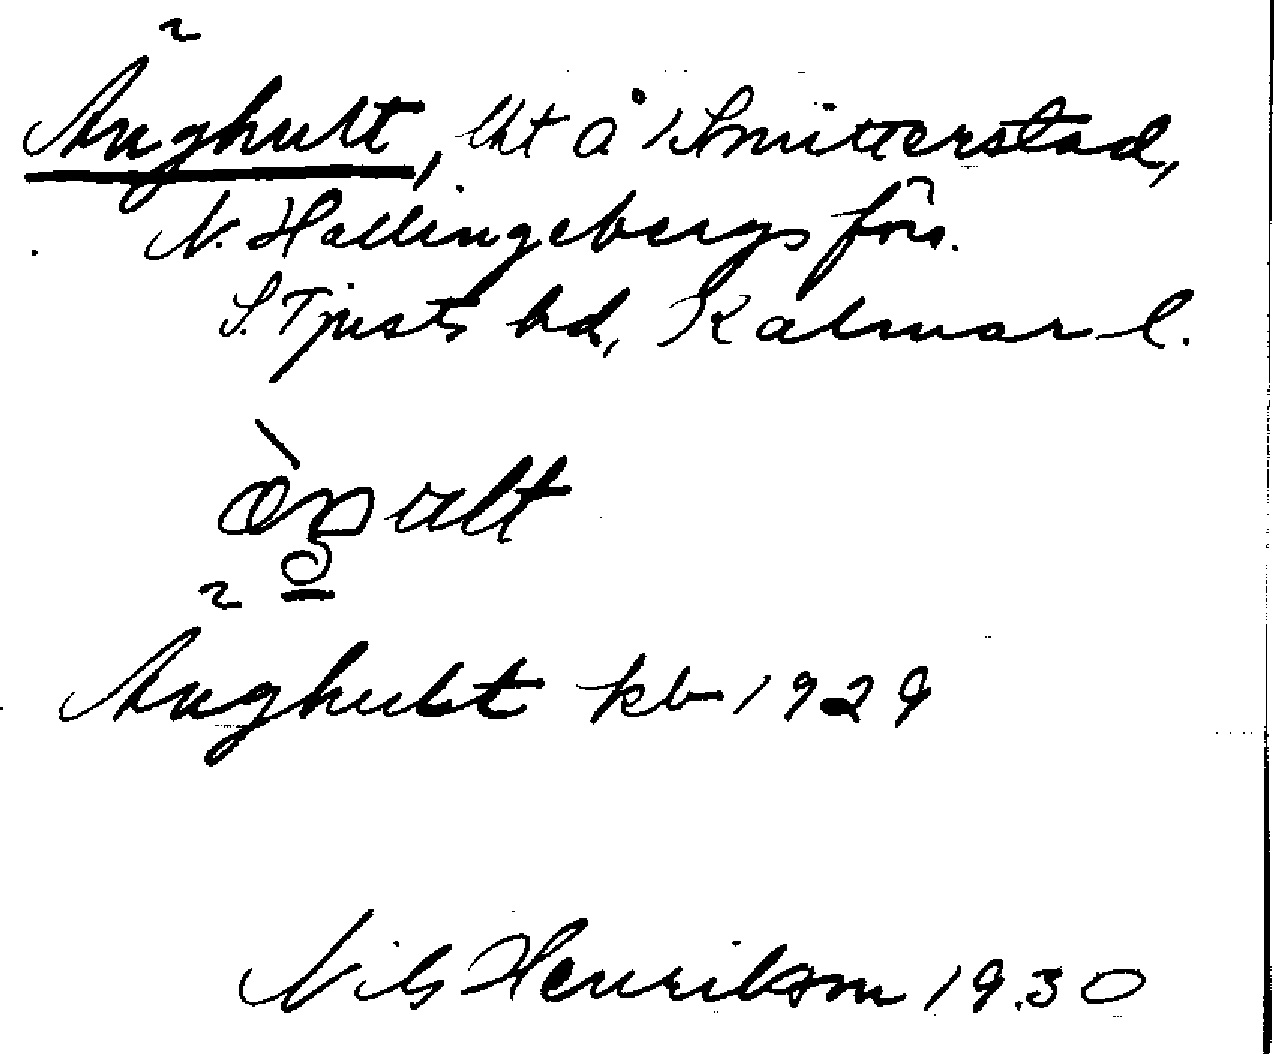 Änghult, lht å Smitterstad,
N. Hallingebergs förs.
S. Tjusts hd, Kalmar l.
Änghult kb 1929
Nils Henrikson 1930